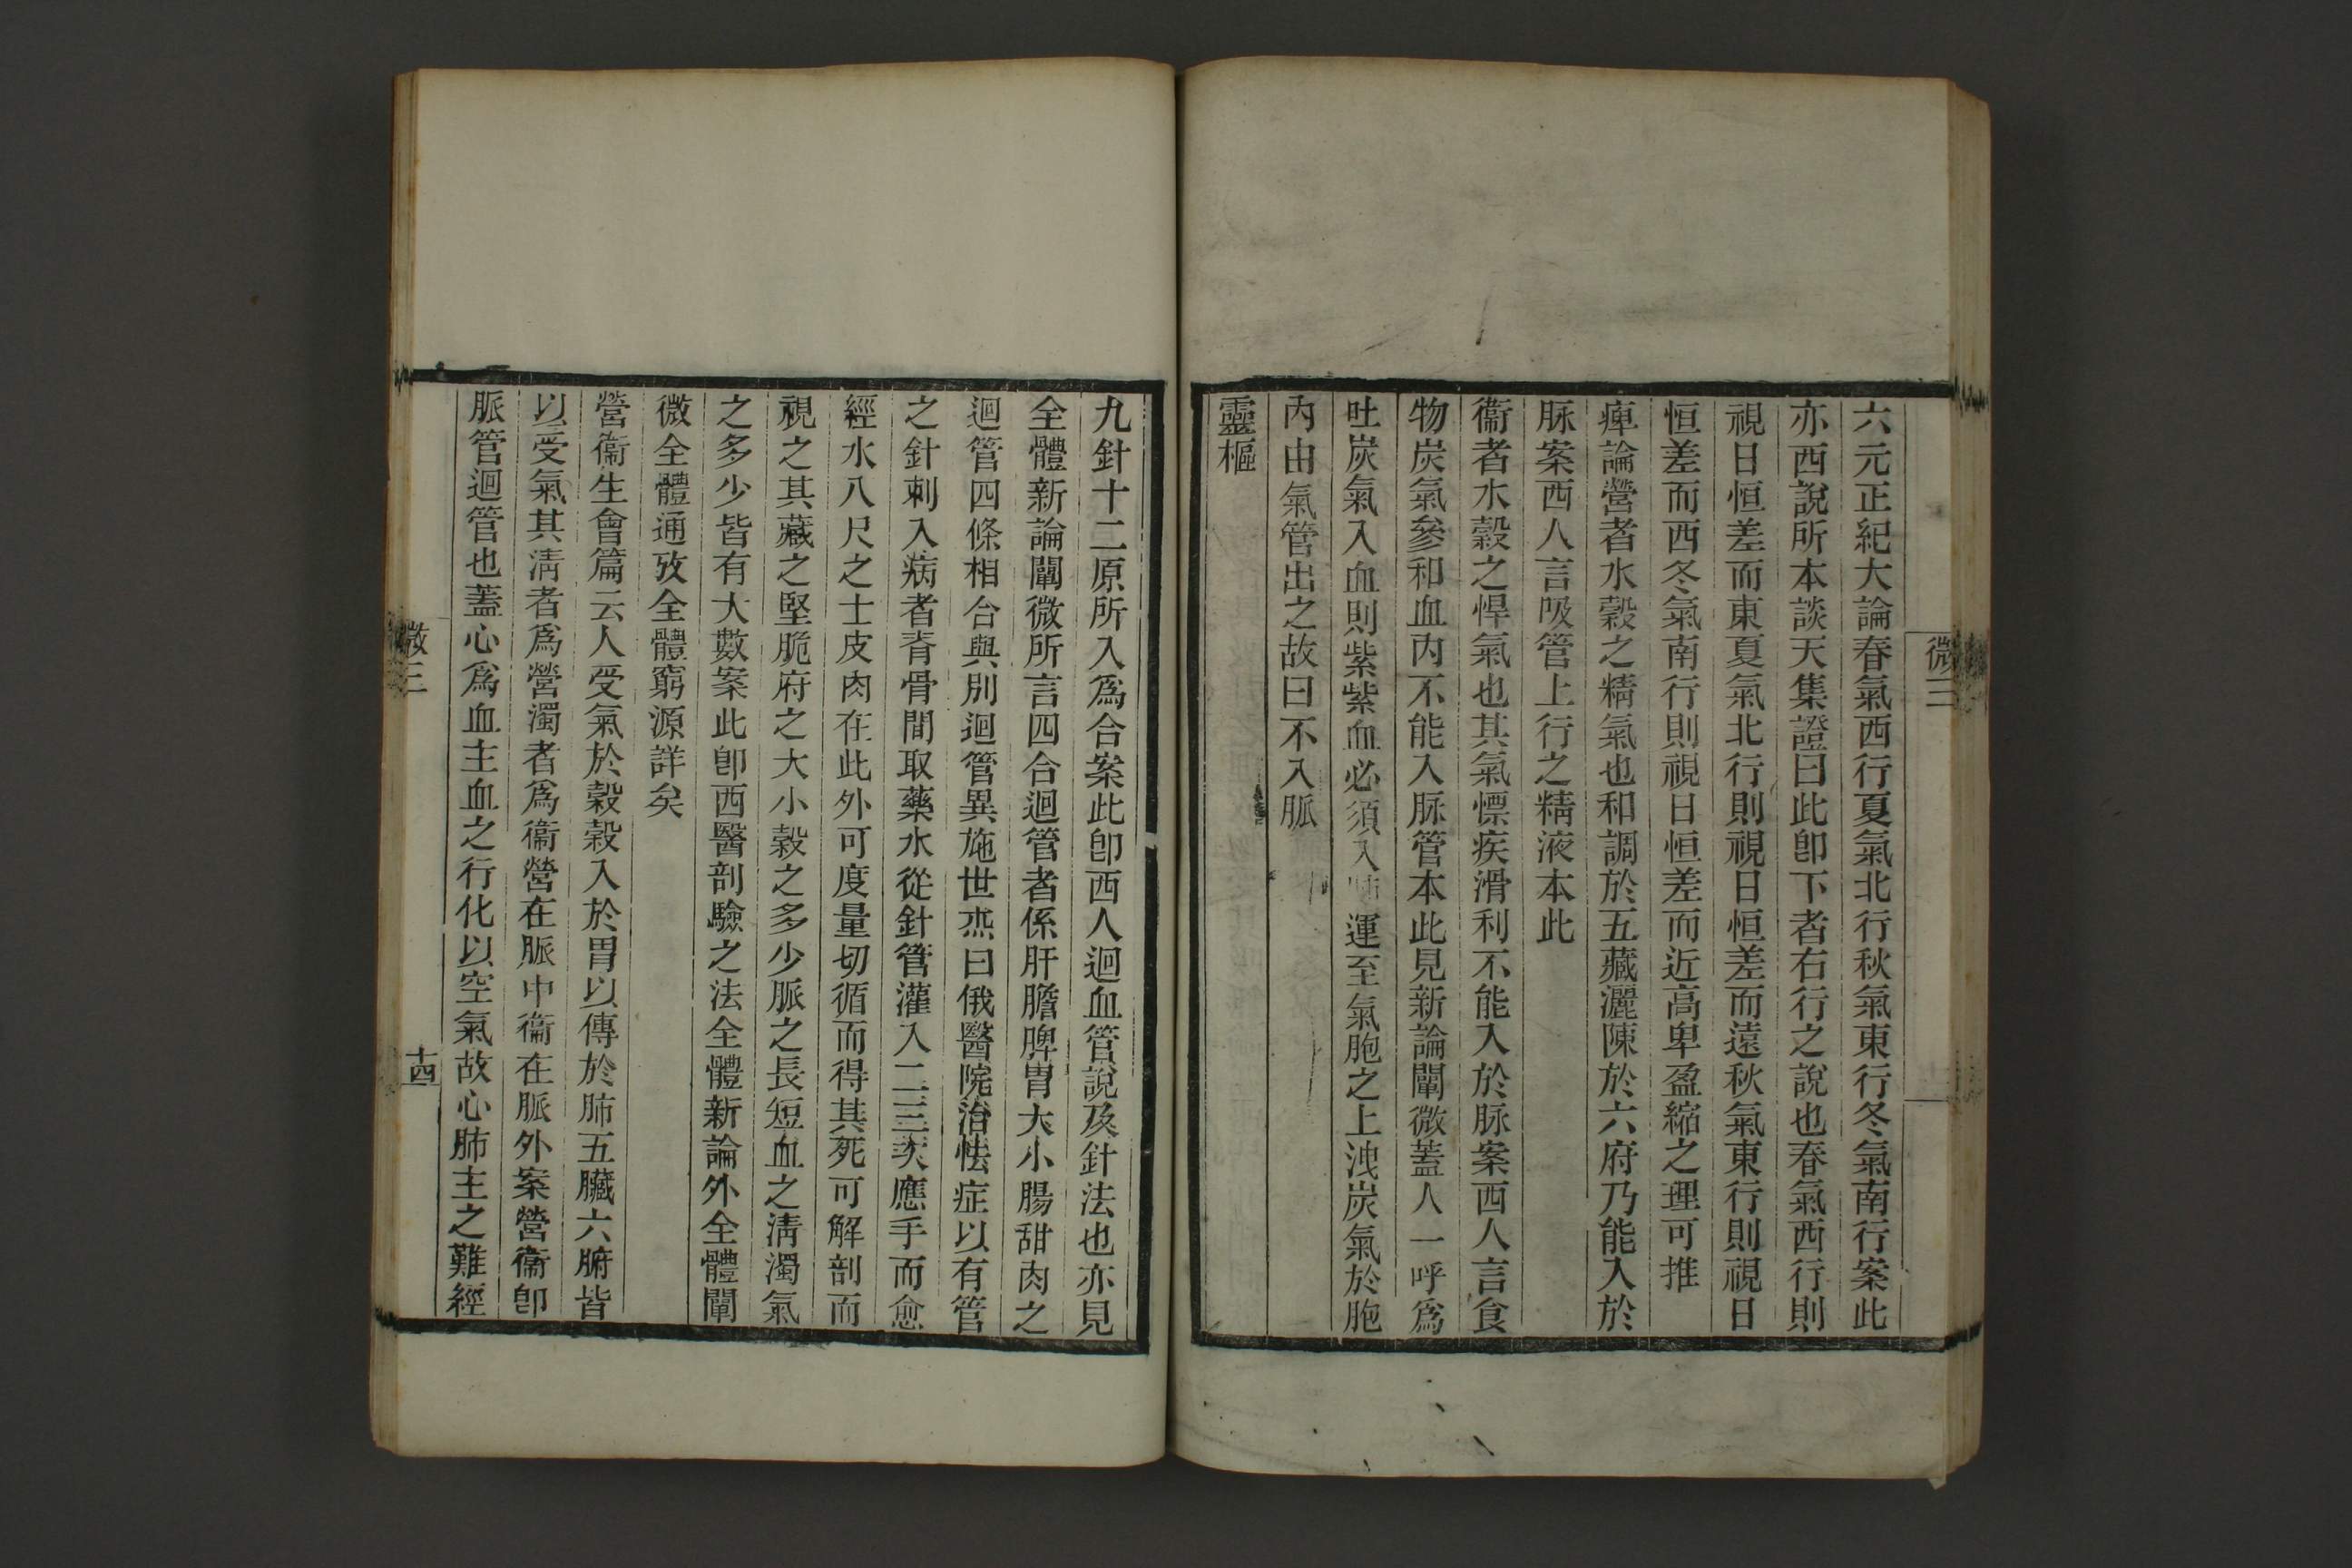 微三
六元正紀大論春氣西行夏氣北行秋氣東行冬氣南行案此
亦西說所本談天集證曰此卽下者右行之說也春氣西行則
視日恒差而東夏氣北行則視日恒差而遠秋氣東行則視日
恒差而西冬氣南行則視日恒差而近高卑盈縮之理可推
痺論營者水穀之精氣也和調於五藏灑陳於六府乃能入於
脉案西人言吸管上行之精液本此
衞者水穀之悍氣也其氣慓疾滑利不能入於脉案西人言食
物炭氣參和血內不能入脉管本此見新論闡微蓋人一呼爲
吐炭氣入血則紫紫血必須入肺運至氣胞之上洩炭氣於胞
內由氣管出之故曰不入脈
靈樞
九針十二原所入爲合案此卽西人迴血管說及針法也亦見
全體新論闡微所言四合迴管者係肝膽脾胃大小腸甜肉之
迴管四條相合與別迴管異施世杰曰俄醫院治怯症以有管
之針刺入病者脊骨間取藥水從針管灌入二三次應手而愈
經水八尺之士皮肉在此外可度量切循而得其死可解剖而
視之其藏之堅脆府之大小穀之多少脈之長短血之淸濁氣
之多少皆有大數案此卽西醫剖驗之法全體新論外全體闡
微全體通攷全體窮源詳矣
營衞生會篇云人受氣於穀穀入於胃以傳於肺五臟六腑皆
以受氣其淸者爲營濁者爲衞營在脈中衞在脈外案營衞卽
脈管迴管也蓋心爲血主血之行化以空氣故心肺主之難經
微三
十四